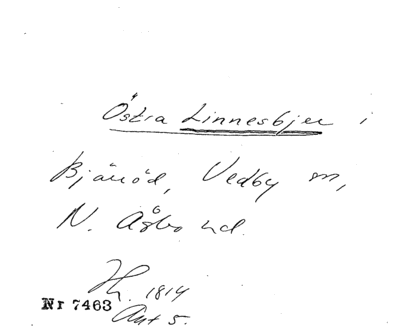 Östra Linnesbjer i
Bjäröd, Vedby sn,
N. Åsbo hd.
Hh. 1814
Akt 5.
Nr 7463